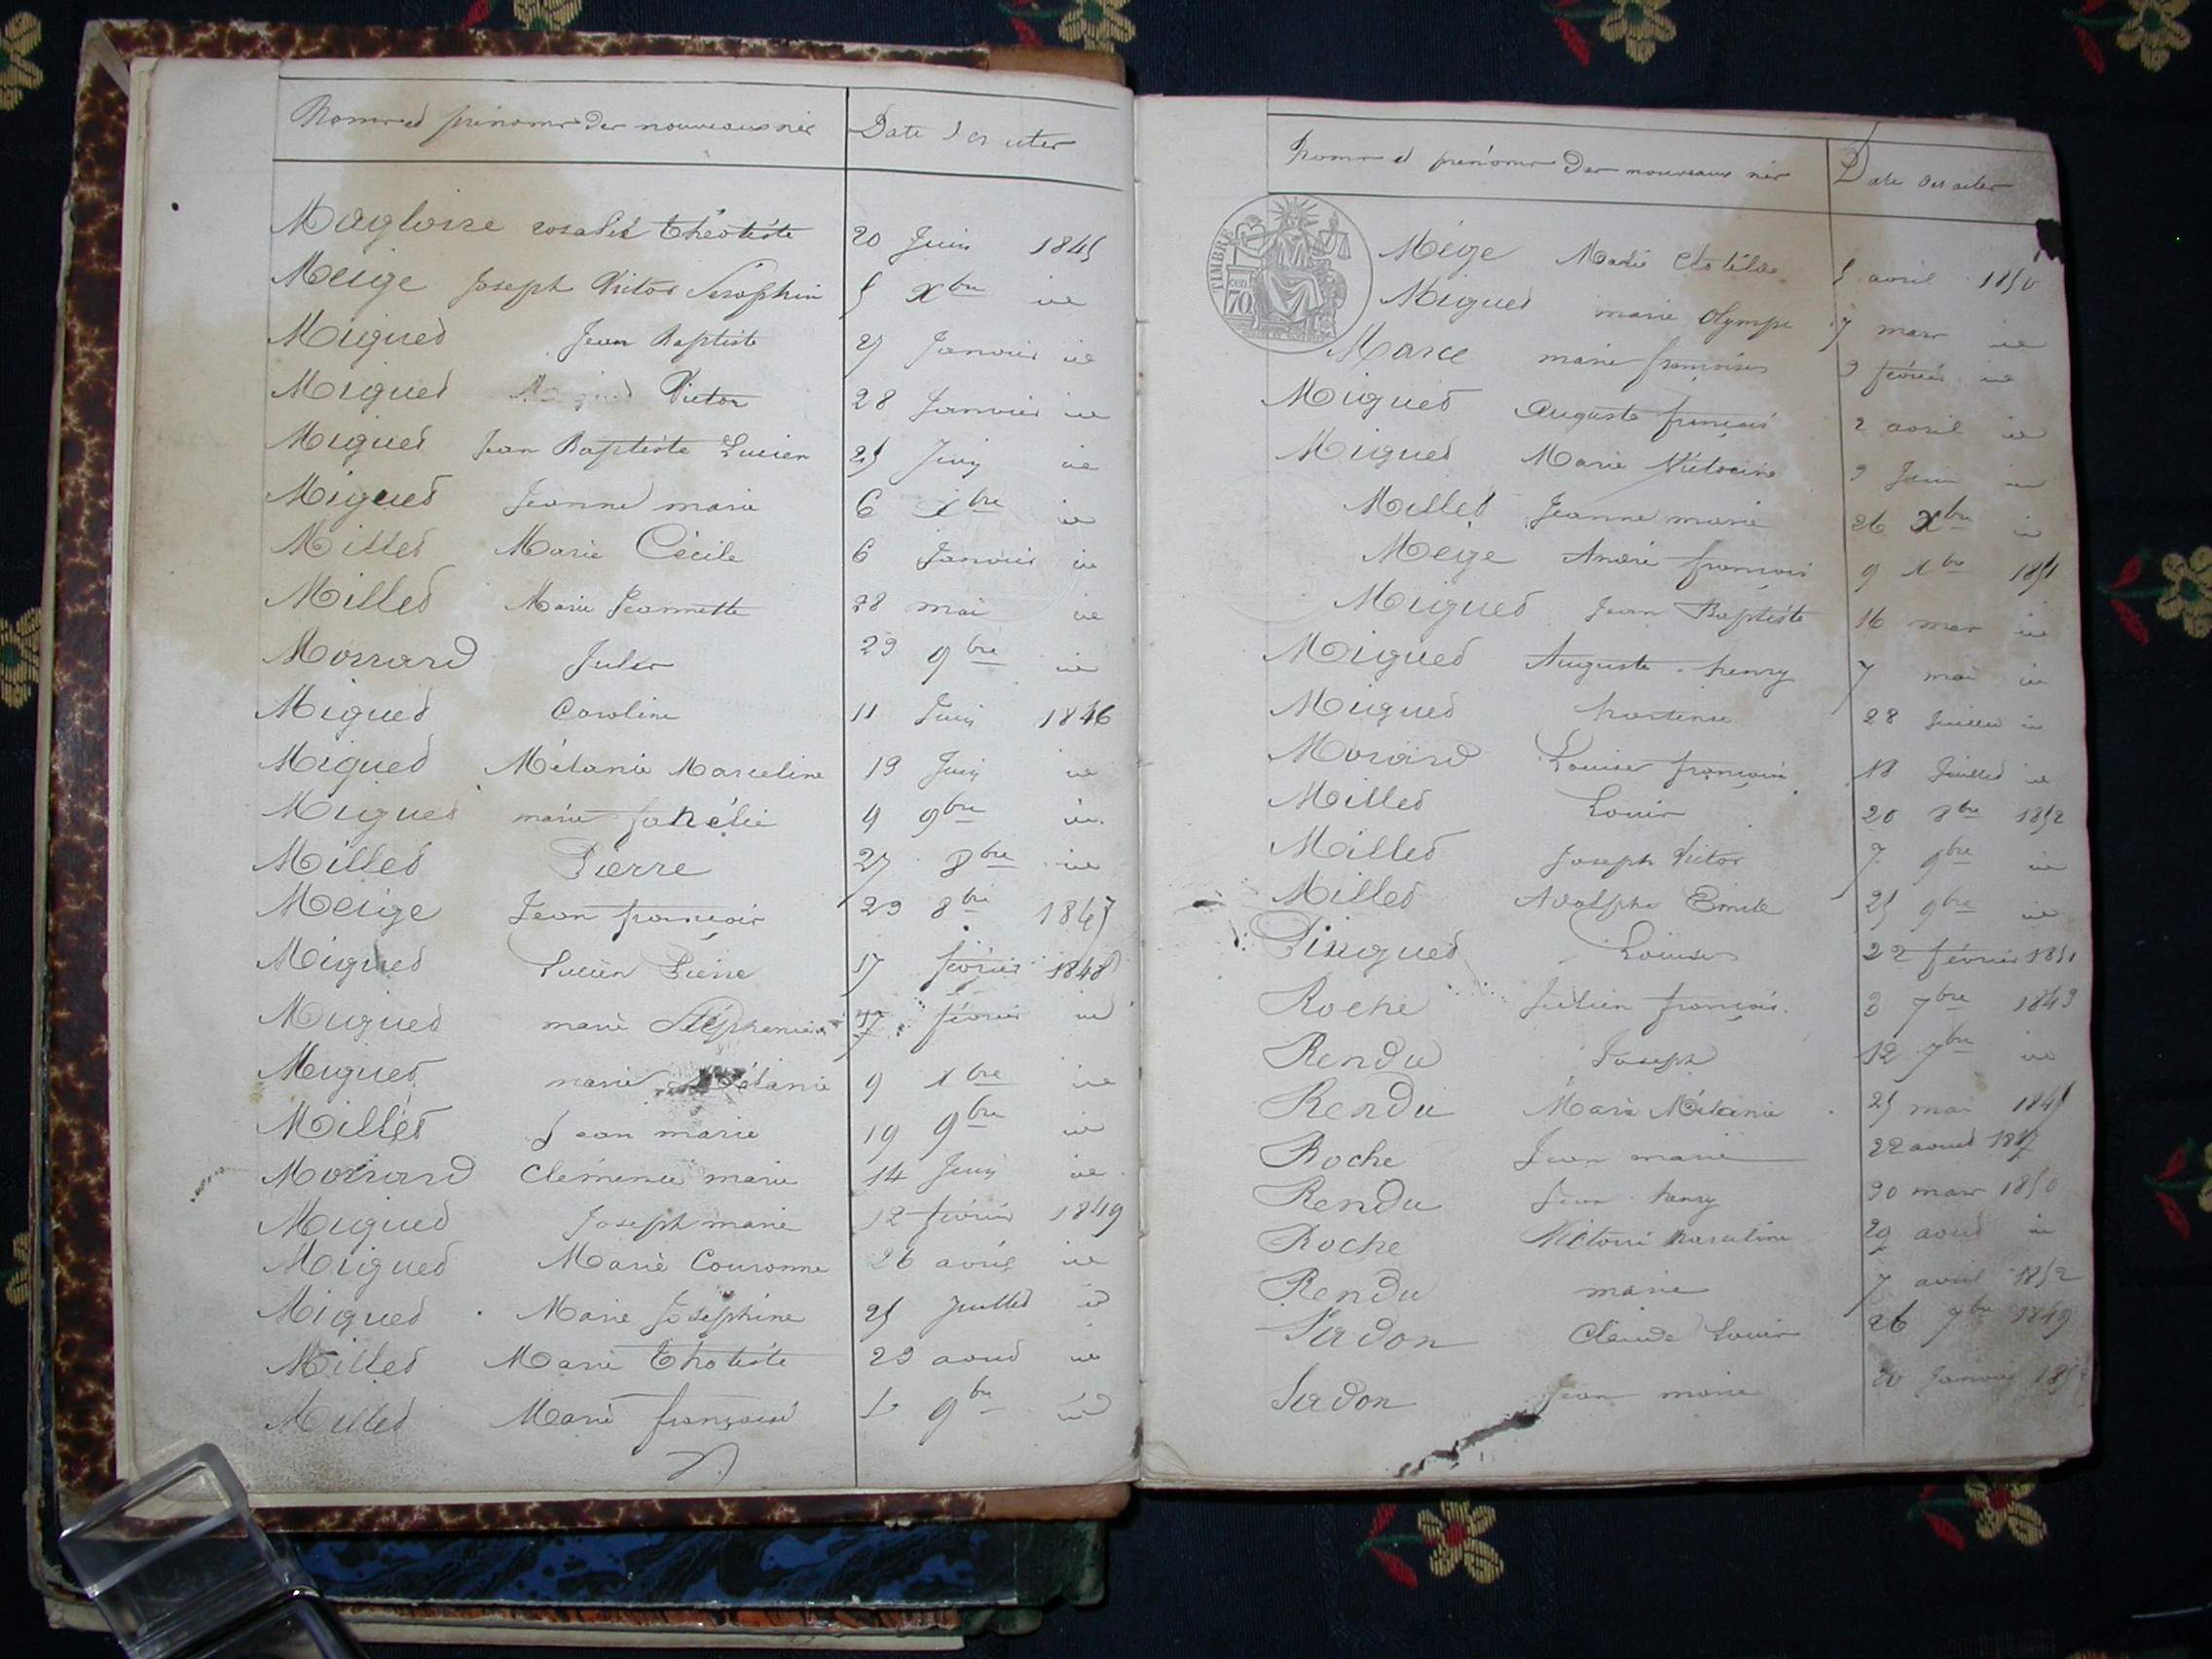 Noms et prénoms des nouveaux nés Date des actes
Magloire rosalie Théotiste 20 Juin 1845
Meige Joseph Victor Séraphin 5 Xbre id
Miguet Jean Baptiste 27 Janvier id
Miguet Victor 28 Janvier id
Miguet Jean Baptiste Lucien 25 Juin id
Miguet Jeanne marie 6 Xbre id
Millet Marie Cécile 6 Janvier id
Millet Marie Jeannette 28 mai id
Morrard Jules 29 9bre id
Miguet Caroline 11 Juin 1846
Miguet Mélanie Marceline 19 Juin id
Miguet marie 9 9bre id
Millet Pierre 27 8bre id
Meige Jean françois 29 8bre 1847
Miguet Lucien Pierre 17 février 1848
Miguet marie Stéphanie 17 février id
Miguet marie Mélanie 9 Xbre id
Millet Jean marie 19 9bre id
Morrard Clémence marie 14 Juin id
Miguet Joseph marie 12 février 1849
Miguet Marie Couronne 26 avril id
Miguet Marie Joséphine 25 Juillet id
Millet Marie Thotiste 29 aout id
Millet Marie françoise 9bre id
Noms et prénoms des nouveaux nés Date des actes
TIMBRE
70
Mège Marie Clotilde 5 avril 1850
Miguet marie Olympe 7 mars id
Marce marie françoise 3 février id
Miguet Auguste françois 2 avril id
Miguet Marie Victorine 9 Juin id
Millet Jeanne marie 26 Xbre id
Meige André françois 9 Xbre 1851
Miguet Jean Baptiste 16 mars id
Miguet Auguste henry 7 mai id
Miguet hortense 28 Juillet id
Morard Louise françoise 18 Juillet id
Millet Louis 20 8bre 1852
Millet Joseph Victor 7 9bre id
Millet Adolphe Emile 25 9bre id
Pinguet Louise 22 février 1851
Roche Julien françois 3 7bre 1849
Rendu Joseph 12 7bre id
Rendu Marie Mélanie 25 mai 1845
Roche Jean marie 22 aout 1847
Rendu Jean henry 30 mars 1850
Roche Victoire Marceline 29 aout id
Rendu marie 7 avril 1852
Serdon Claude Louis 26 7bre 1849
Serdon Jean marie 20 Janvier